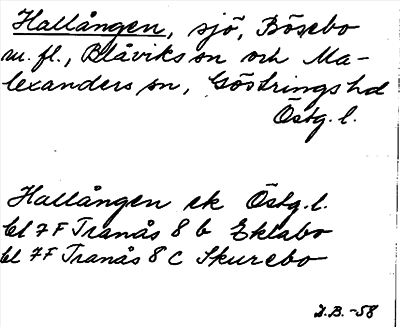 Hallången, sjö, Bösebo
m. fl., Blåviks sn och Ma-
lexanders sn, Göstrings hd
Östg. l.
Hallången ek Östg. l.
bl 7 F Tranås 8 b Eklabo
bl 7 F Tranås 8 C Skurebo
I.B. -58